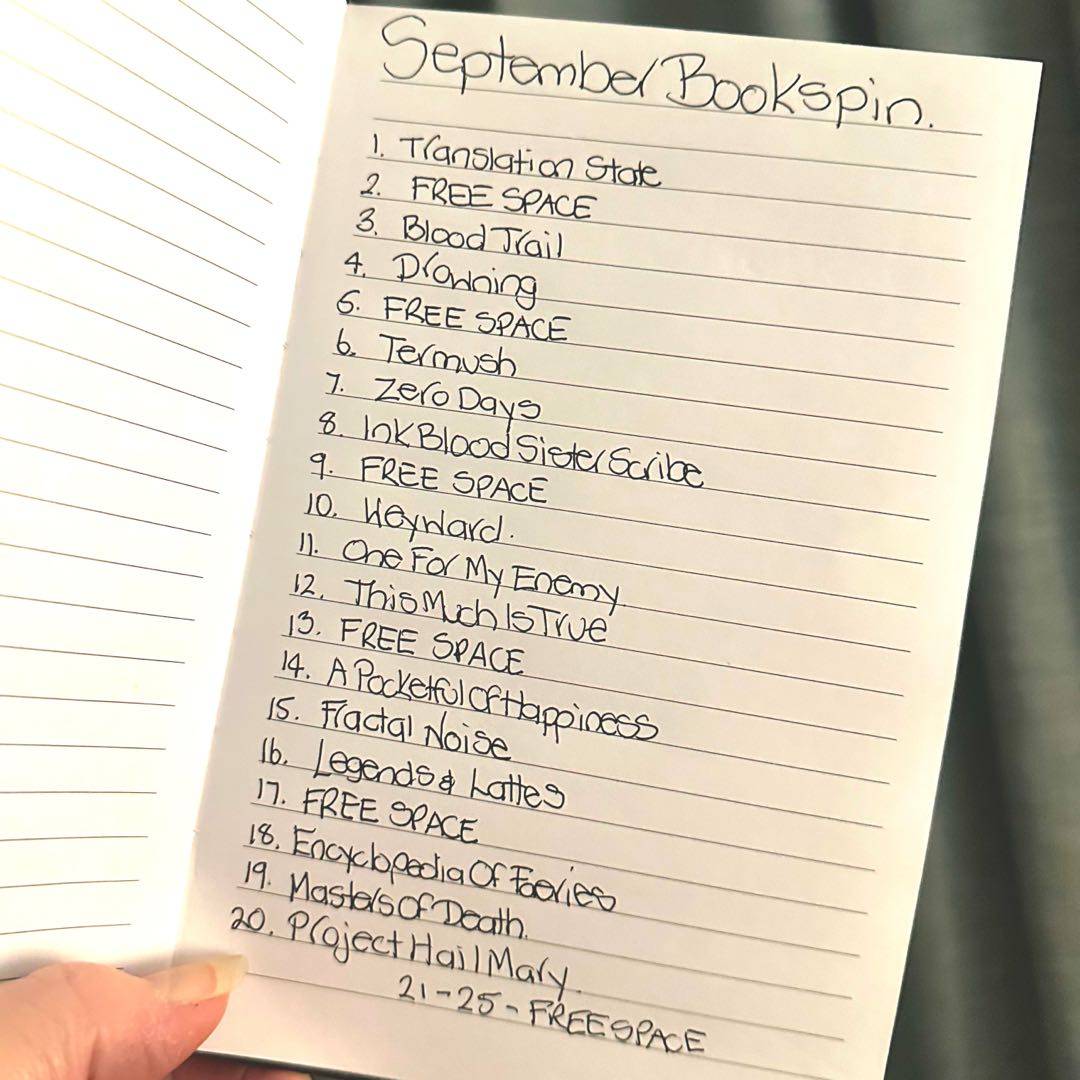 September Bookspin.
1. Translation State
2. FREE SPACE
3. Blood Trail
4. Drowning
5. FREE SPACE
6. Termush
7. Zero Days
8. Ink Blood Sister Scribe
9. FREE SPACE
10. Weyward.
11. One For My Enemy
12. This Much Is True
13. FREE SPACE
14. A Pocketful Of Happiness
15. Fractal Noise
16. Legends & Lattes
17. FREE SPACE
18. Encyclopedia Of Faeries
19. Masters Of Death.
20. Project Hail Mary.
21-25 - FREE SPACE